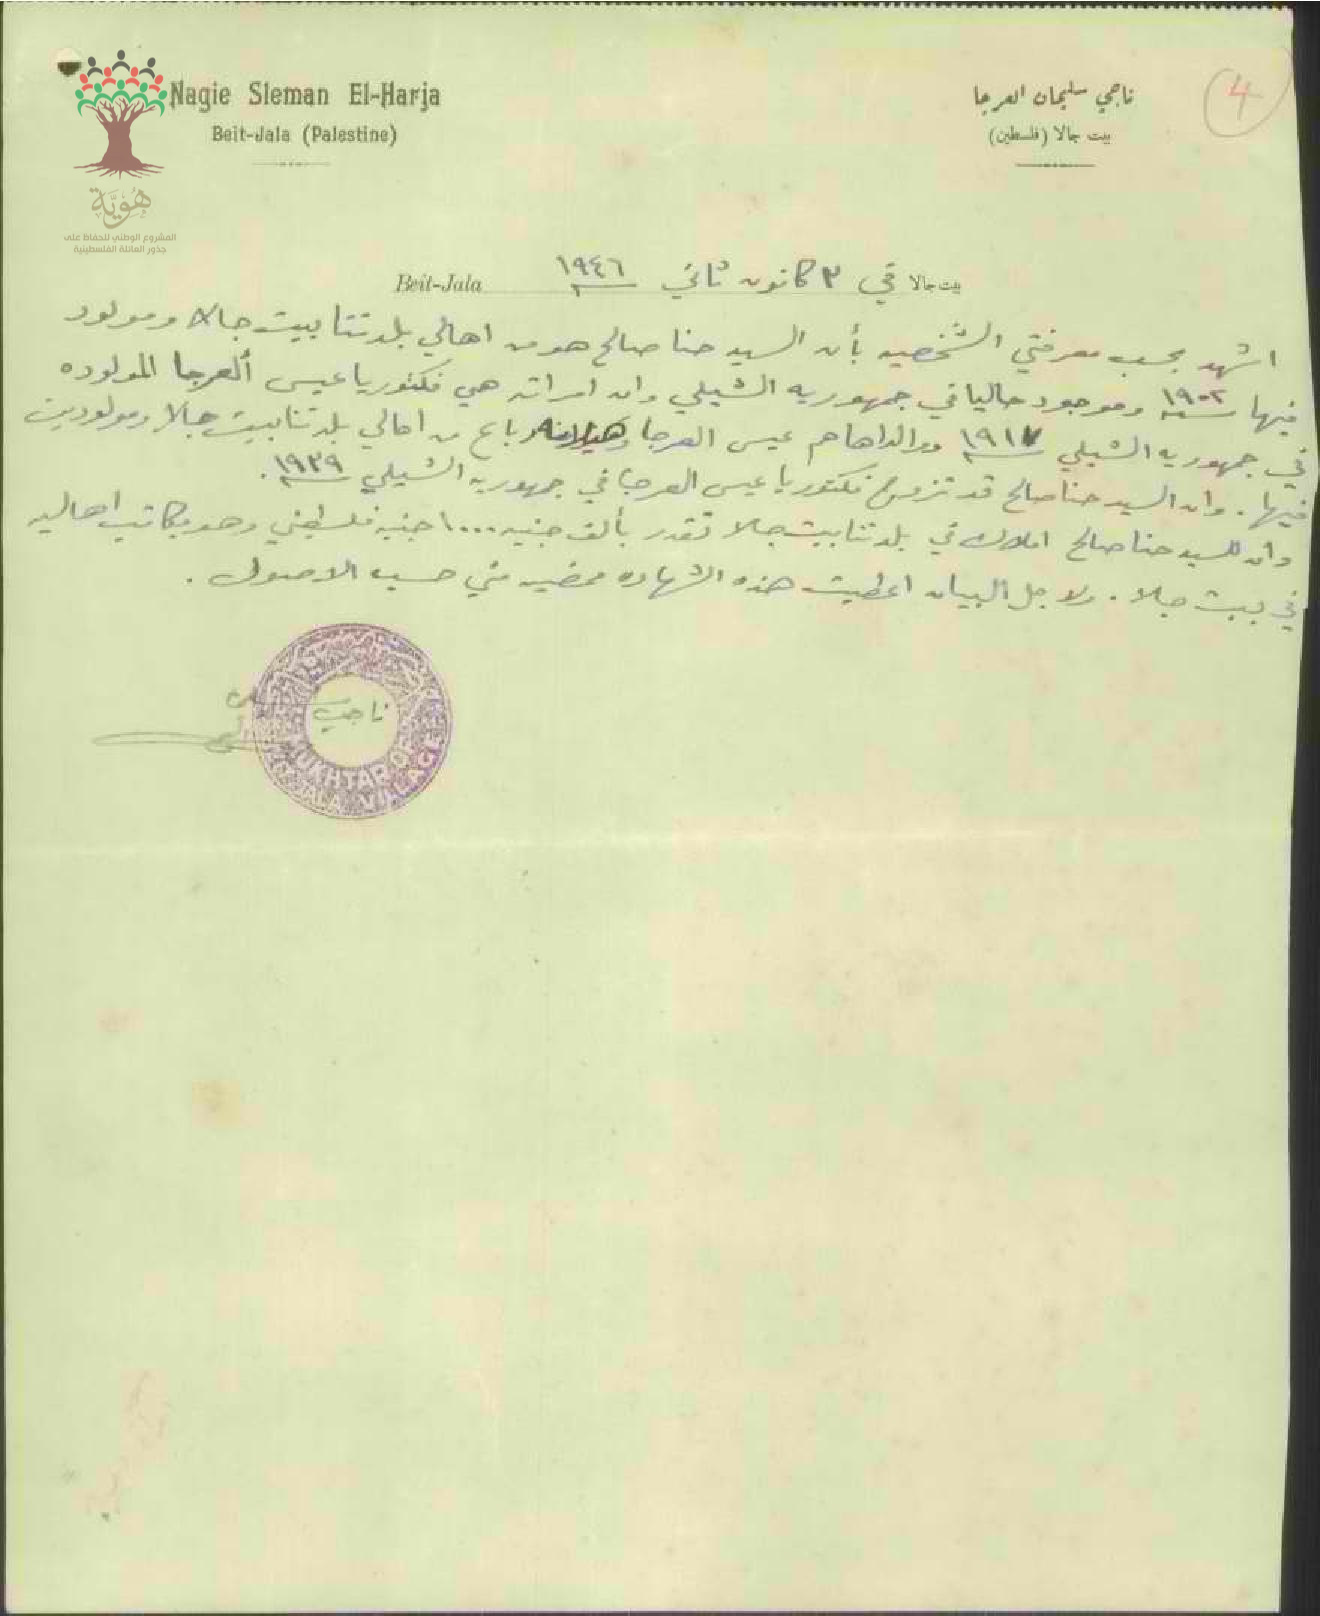 Nagie Sleman El-Harja
Beit-Jala (Palestine)
ناجي سليمان العرجا
بيت جالا (فلسطين)
4
هُوِيَّة
المشروع الوطني للحفاظ على
جذور العائلة الفلسطينية
Beit-Jala بيت جالا في ٣ كانون ثاني سنة ١٩٤٦
اشهد بحسب معرفتي الشخصيه بأن السيد حنا صالح هو من اهالي بلدتنا بيت جالا ومولود
فيها سنة ١٩٠٢ وموجود حاليا في جمهوريه الشيلي وان امراته هي فكتوريا عيسى العرجا المولوده
في جمهوريه الشيلي سنة ١٩١٧ ووالداها هم عيسى العرجا من اهالي بلدتنا بيت جالا ومولودين
فيها. وان السيد حنا صالح قد تزوج فكتوريا عيسى العرجا في جمهوريه الشيلي سنة ١٩٣٩.
وان للسيد حنا صالح املاك في بلدتنا بيت جالا تقدر بألف جنيه ١٠٠٠ جنيه فلسطيني وهو يكاتب اهاليه
في بيت جالا. ولاجل البيان اعطيت هذه الشهاده ممضيه مني حسب الاصول.
ناجي
MUKHTAR OF
JALA VILLAGE